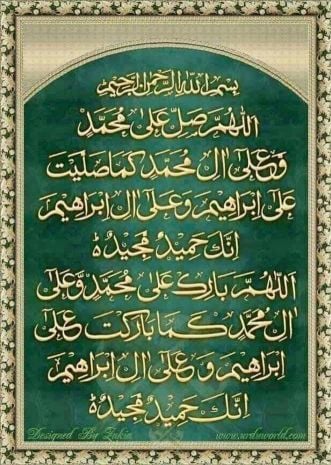 بسم الله الرحمن الرحيم
اللهم صل على محمد
وعلى ال محمد كما صليت
على ابراهيم وعلى ال ابراهيم
انك حميد مجيد
اللهم بارك على محمد وعلى
ال محمد كما باركت على
ابراهيم وعلى ال ابراهيم
انك حميد مجيد
Designed By Zakia www.urduworld.com